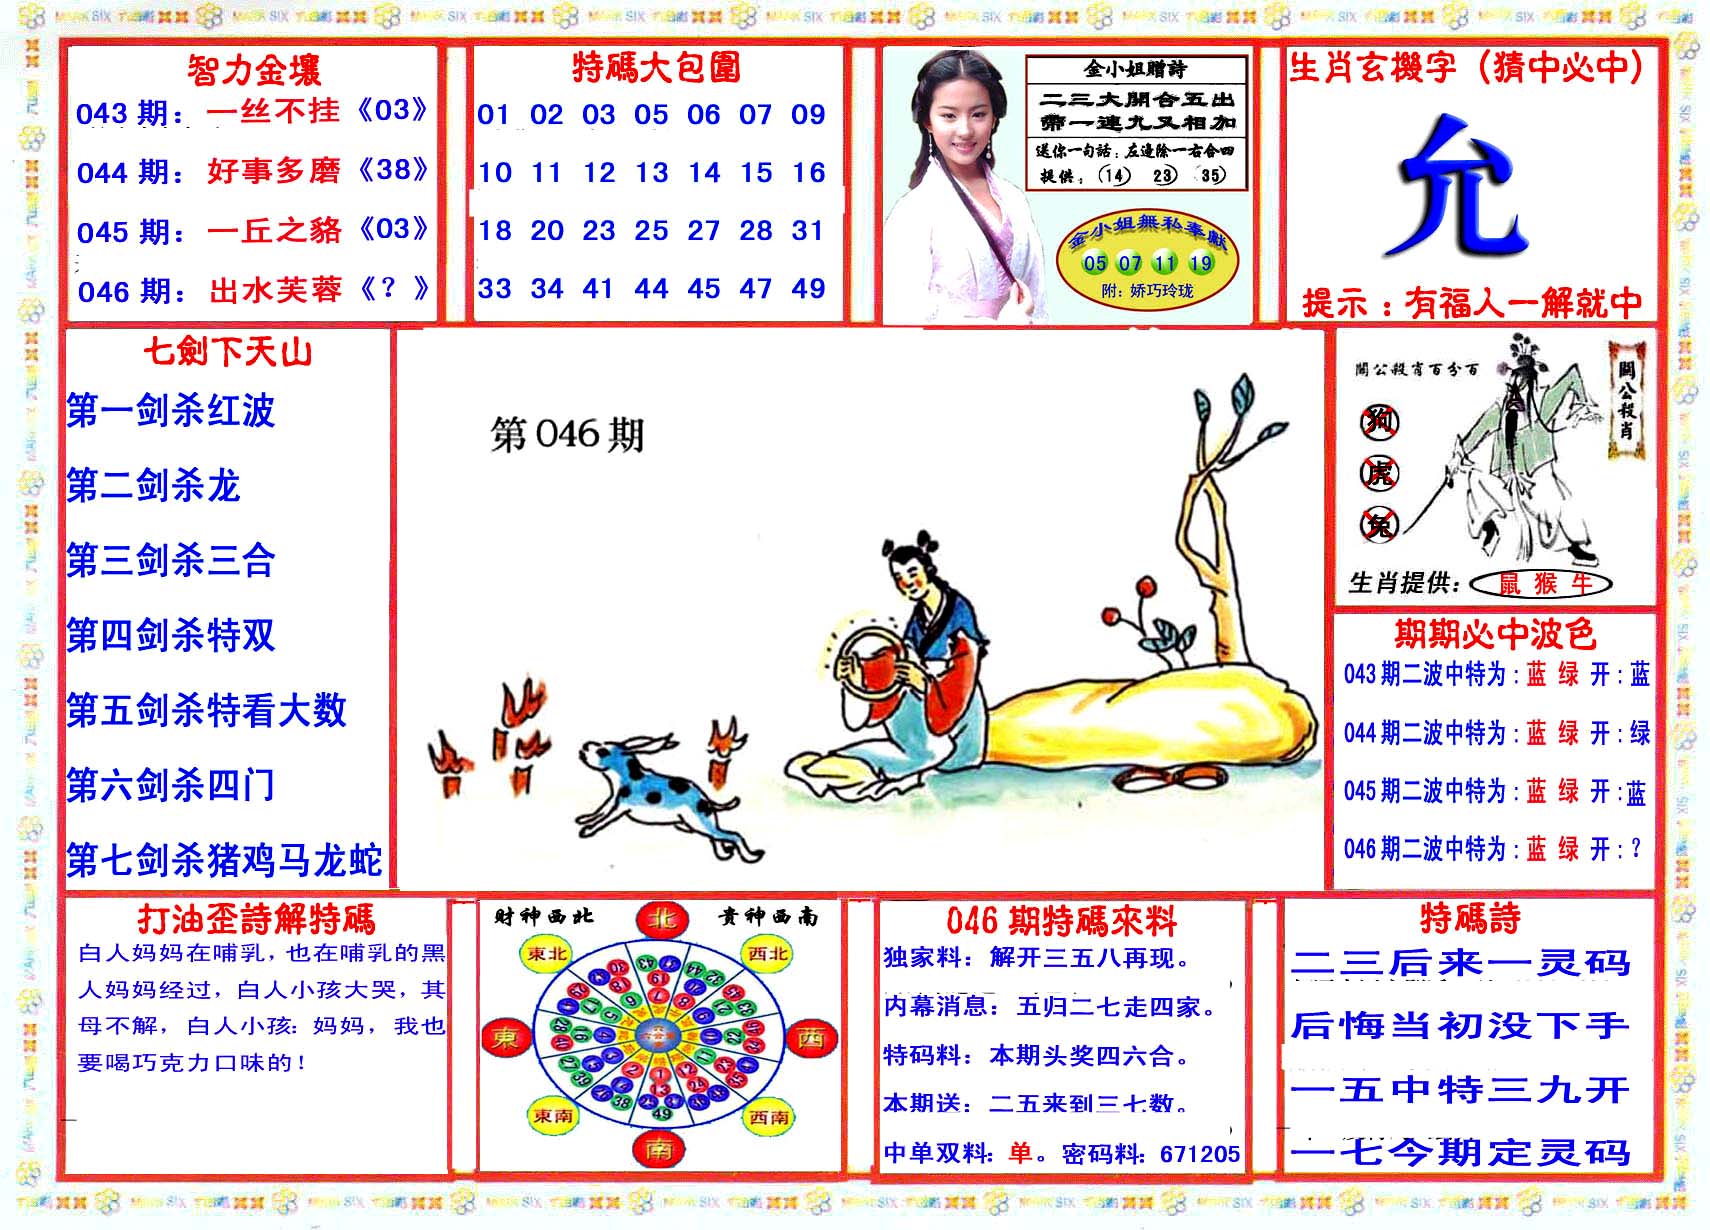 智力金壤
043 期：一丝不挂《03》
044 期：好事多磨《38》
045 期：一丘之貉《03》
046 期：出水芙蓉《？》
特碼大包圍
01 02 03 05 06 07 09
10 11 12 13 14 15 16
18 20 23 25 27 28 31
33 34 41 44 45 47 49
金小姐贈詩
二三大開合五出
帶一連九又相加
送你一句話：左邊除一右合四
提供：（14） 23） （35）
金小姐無私奉獻
05 07 11 19
附：娇巧玲珑
生肖玄機字（猜中必中）
允
提示：有福人一解就中
七劍下天山
第一剑杀红波
第二剑杀龙
第三剑杀三合
第四剑杀特双
第五剑杀特看大数
第六剑杀四门
第七剑杀猪鸡马龙蛇
第 046 期
關公殺肖百分百
關公殺肖
狗
虎
兔
生肖提供：鼠 猴 牛
期期必中波色
043 期二波中特为：蓝 绿 开：蓝
044 期二波中特为：蓝 绿 开：绿
045 期二波中特为：蓝 绿 开：蓝
046 期二波中特为：蓝 绿 开：？
打油歪詩解特碼
白人妈妈在哺乳，也在哺乳的黑
人妈妈经过，白人小孩大哭，其
母不解，白人小孩：妈妈，我也
要喝巧克力口味的！
财神西北
貴神西南
北
東北
西北
東
西
東南
西南
南
046 期特碼來料
独家料：解开三五八再现。
内幕消息：五归二七走四家。
特码料：本期头奖四六合。
本期送：二五来到三七数。
中单双料：单。密码料：671205
特碼詩
二三后来一灵码
后悔当初没下手
一五中特三九开
一七今期定灵码